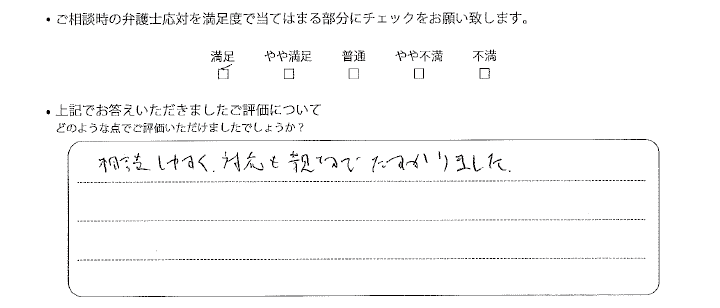 ・ご相談時の弁護士応対を満足度で当てはまる部分にチェックをお願い致します。
満足 やや満足 普通 やや不満 不満
・上記でお答えいただきましたご評価について
どのような点でご評価いただけましたでしょうか？
相談しやすく、対応も親切でたすかりました。